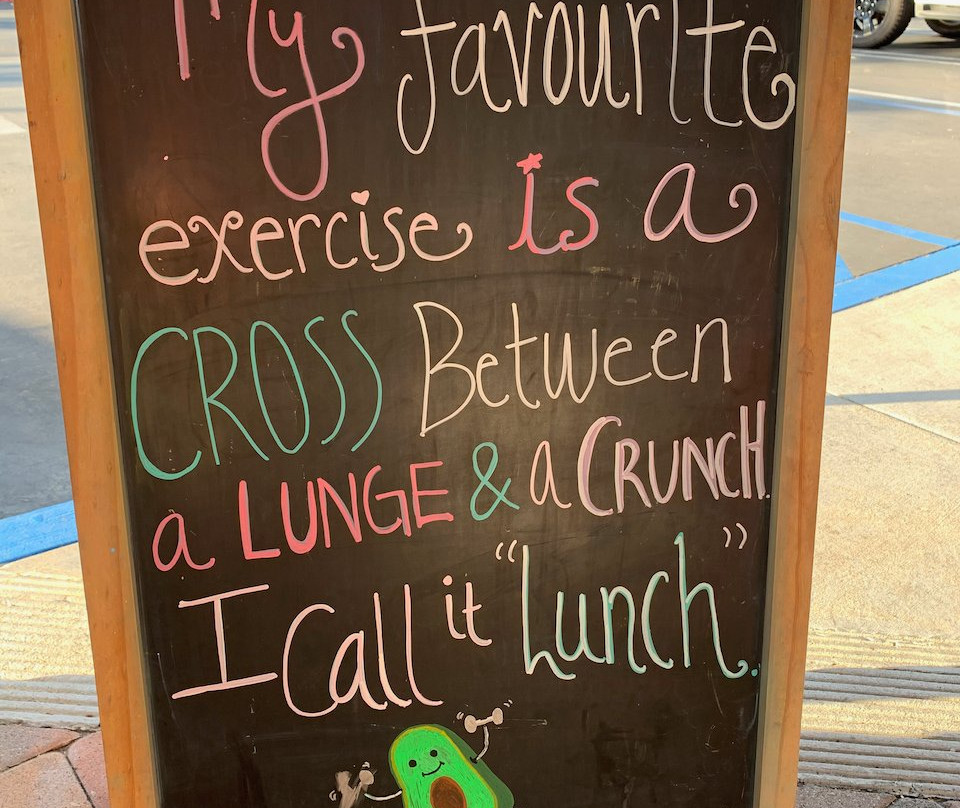 My favourite
exercise is a
CROSS Between
a LUNGE & a CRUNCH.
I Call it "Lunch".